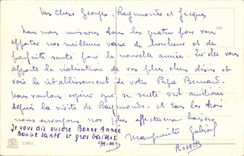 Mes chers Georges, Raymonde et Jacques
Nous nous unissons tous les quatre pour vous
apporter nos meilleurs vœux de bonheur et de
parfaite santé pour la nouvelle année. Si elle vous
apporte la réalisation de vos plus chers désirs et
voit le rétablissement de votre Papa Bernard.
Nous voulons espérer que sa santé s'est améliorée
depuis la visite de Raymonde. Et tous les trois
nous envoyons nos plus affectueux baisers
Je vous dis encore Bonne Année
bonne santé et gros baisers
Mimi
Marguerite Gabriel